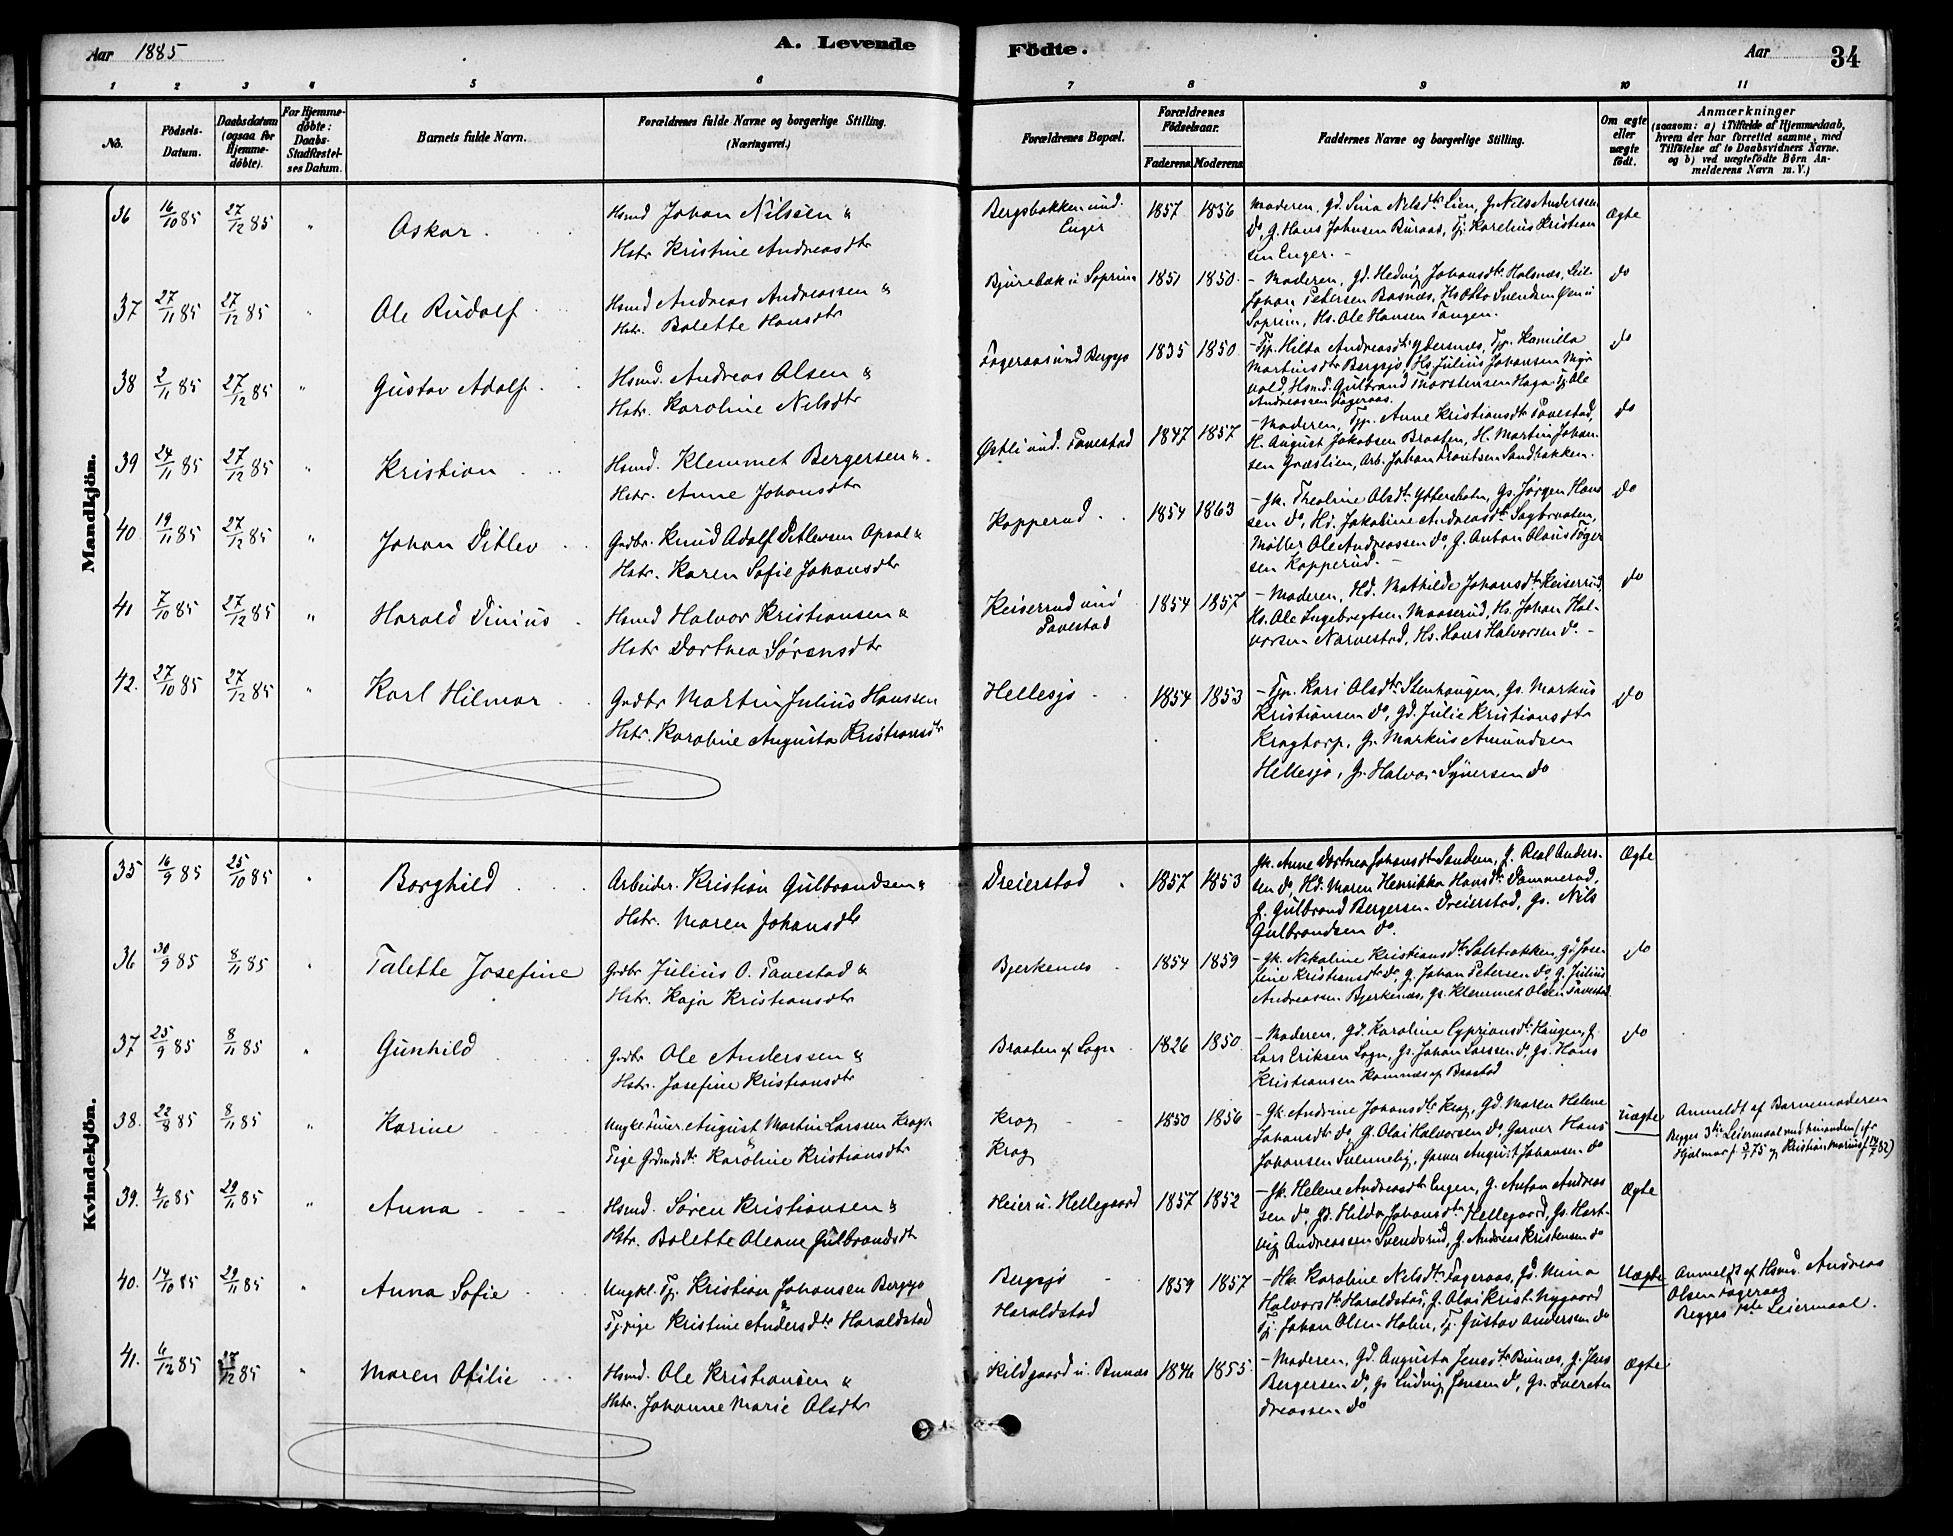 Aar 1885
A. Levende
Födte.
Aar
34
1 2 3 4 5 6 7 8 9 10 11
No.
Födsels-Datum.
Daabsdatum (ogsaa for Hjemmedöbte).
For Hjemmedöbte: Daabs-Stadfæstelses Datum.
Barnets fulde Navn.
Forældrenes fulde Navne og borgerlige Stilling. (Næringsvei.)
Forældrenes Bopæl.
Forældrenes Födselsaar.
Faderens Moderens
Faddernes Navne og borgerlige Stilling.
Om ægte eller uægte födt.
Anmærkninger
(saasom: a) i Tilfælde af Hjemmedaab, hvem der har forrettet samme, med Tilföielse af to Daabsvidners Navne. og b) ved uægtefödte Börn Anmelderens Navn m. V.)
Mandkjön.
36 16/10 85 27/12 85 " Oskar
Hsmd Johan Nilsen &
Hstr Kristine Andreasdtr
Bergsbakken und. Enger
1857 1856
Moderen, Gd. Sina Nilsdtr Lien, G. Nils Anderssen
Do, G. Hans Johnsen Buraas, Tj. Karelius Kristian
sen Enger. -
Ægte
37 27/11 85 27/12 85 " Ole Rudolf
Hsmd Andreas Andreassen &
Hstr. Bolette Hansdtr
Bjurebæk u Soprim
1851 1850
- Moderen, Gd. Hedvig Johansdtr Holsnæs,
Johan Petersen Basnæs, Hs Otto Svendsen
Soprim, Hs. Ole Hansen Tangen.
do
38 2/11 85 27/12 85 " Gustav Adolf
Hsmd. Andreas Olsen &
Hstr. Karoline Nilsdtr
Fageraas und Bergsjø
1835 1850
- Tjp. Hilda Andreasdtr Ydersnæs, Tjp. Kamilla
Martinusdtr Bergsjø, Hs Julius Johansen
vold, Hsmd. Gulbrand Thorstensen Haga Tj. Ole
Andreassen Fageraas.
do
39 24/11 85 27/12 85 " Kristian
Hsmd. Klemmet Bergersen &
Hstr. Anne Johansdtr
Østli und. Tavestad
1847 1857
- Moderen, Tjp. Anne Kristiansdtr Tavestad,
H. August Jakobsen Braaten, H. Martin Johan
sen Græslien, Arb. Johan Sandbakken.
do
40 19/11 85 27/12 85 " Johan Ditlev
Grdbr. Knud Adolf Ditlevsen Opsal &
Hstr. Karen Sofie Johansdtr
Kopperud
1854 1863
- Gk. Theoline Olsdtr Yttersholm, Gs. Jørgen Han
sen Do, Hd. Jakobine Andreasdtr Sagbraaten,
Møller Ole Andreassen do, G. Anton Olaus
sen Kopperud. -
do
41 7/10 85 27/12 85 " Harald Dinius
Hsmd Halvor Kristiansen &
Hstr Dortnea Sørensdtr
Keiserrud und Tavestad
1854 1857
- Moderen, Hd. Mathilde Johansdtr Keiserrud,
Hs. Ole Ingebregtsen Maaserud, Hs. Johan Hal-
vorsen Narvestad, Hs. Hans Halvorsen Do. -
do
42. 27/10 85 27/12 85 " Karl Hilmar
Grdbr Martin Julius Hanssen
Hstr. Karoline Augusta Kristiansdtr
Hellesjø
1854 1853
- Tjp. Kari Olsdtr Stenhaugen, Gs. Markus
Kristiansen Do, Gd. Julie Kristiansdtr
Kragtorp, G. Markus Amundsen
Hellesjø, G. Halvor Syversen Do
do
Kvindekjön.
35 16/9 85 25/10 85 " Borghild
Arbeider. Kristian Gulbrandsen &
Hstr. Maren Johansdtr
Dreierstad
1857 1853
Gk. Anne Dortnea Johansdtr Sandem, G. Real Anders-
sen Do, Hd. Maren Henrikka Hansdtr Dammerud,
G. Gulbrand Bergersen Dreierstad, Gs. Nils
Gulbrandsen do.
Ægte
36 30/9 85 8/11 85 " Talette Josefine
Grdbr Julius O. Tavestad &
Hstr. Kaja Kristiansdtr
Bjerkenæs
1854 1859
- Gk. Nikoline Kristiansdtr, Gd. Jose-
fine Kristiansdtr Do, G. Johan Petersen Do, G. Julius
Andreassen Bjerkenæs, Gs. Klemmet Olsen Tavestad.
do
37 25/9 85 8/11 85 " Gunhild
Grdbr Ole Anderssen &
Hstr. Josefine Kristiansdtr
Braaten af Sogn
1826 1850
- Moderen, Gd. Karoline Cypriansdtr Haugen, G.
Lars Eriksen Sogn, Gs. Johan Larssen do Gs. Hans
Kristiansen Kamnæs af Brostad
do
38. 22/8 85 8/11 85 " Karine
Ungk. August Martin Larssen Krogh
Pige Grdmdsdtr. Karoline Kristiansdtr
Krog
Krog
1850 1856
- Gk. Andrine Johansdtr Krog, Gd. Maren Helene
Johansdtr do, G. Olai Halvorsen Do Garver Hans
Johansen Svenneby, Garver August Johansen do
Uægte
Anmeldt af Barnemoderen
Begges 3die Leiermaal med hinanden (cfr
Hjalmar f. 3/1 75 og Kristian Marius f. 14/7 82)
39. 4/10 85 29/11 85 " Anna
Hsmd. Søren Kristiansen &
Hstr. Bolette Oleane Gulbrandsdtr
Heier u. Hellegaard
1857 1852
- Gk. Helene Andreasdtr Engen, G. Anton Andreas
sen do, Gd. Hilda Johansdtr Hellegaard, Gs. Hart-
vig Andreassen Svendsrud, G. Andreas Kristensen do
Ægte
40. 14/10 85 29/11 85 " Anna Sofie
Ungkl. Tj. Kristian Johansen Bergsjø
Tjpige Kristine Andersdtr Haraldstad
Bergsjø
Haraldstad
1859 1857
- Hk. Karoline Nilsdtr Fageraas, Gd. Mina
Halvorsdtr Haraldstad, G. Olai Krist. Nygaard
Tj. Johan Olsen Holm, Tj. Gustav Andersen do
Uægte
Anmeldt af Hsmd. Andreas
Olsen Fageraas
Begges 1ste Leiermaal.
41. 6/12 85 27/12 85 " Maren Otilie
Hsmd. Ole Kristiansen &
Hstr. Johanne Marie Olsdtr
Kildgaard u. Bunæs
1846 1855
- Moderen, Gd. Augusta Jensdtr Bunæs, G. Jens
Bergersen do, Gs Ludvig Jensen do, Gs. Sverre An
dreassen do
Ægte